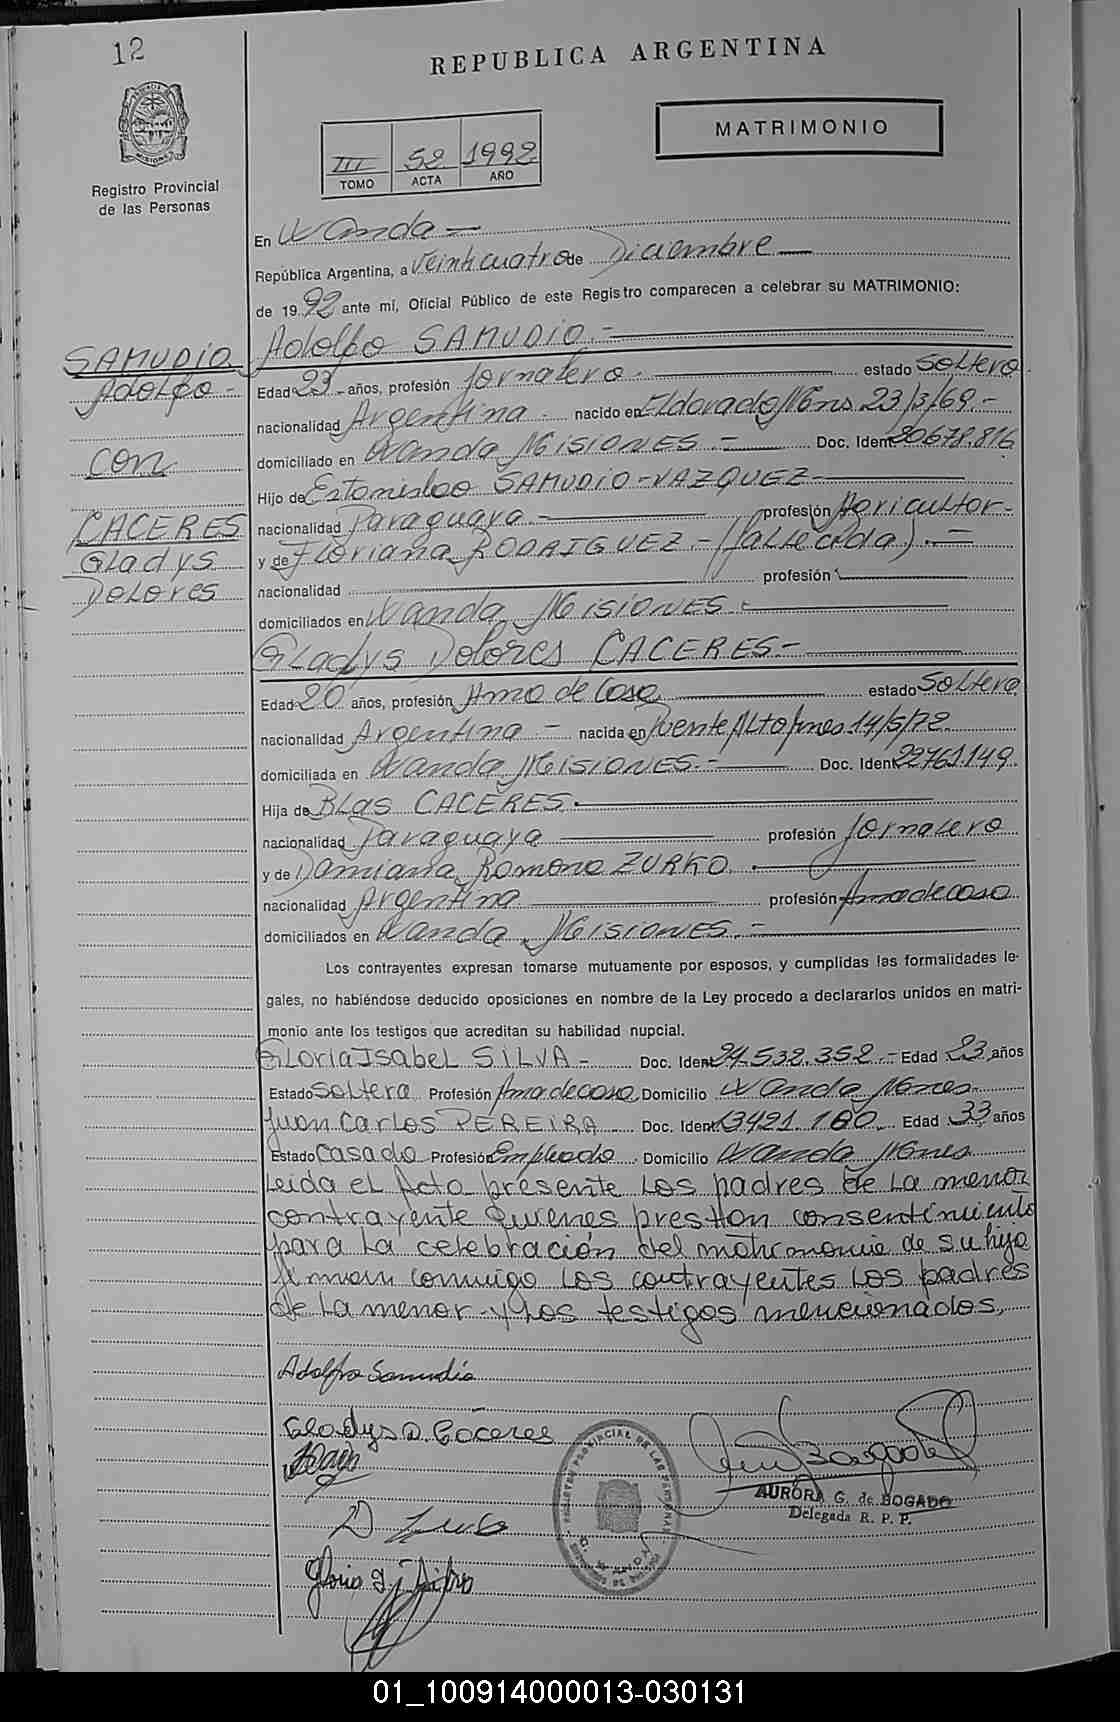 12
REPUBLICA ARGENTINA
MATRIMONIO
III 52 1992
TOMO ACTA AÑO
Registro Provincial
de las Personas
En Wanda
República Argentina, a Veinticuatro de Diciembre
de 1992 ante mí, Oficial Público de este Registro comparecen a celebrar su MATRIMONIO:
SAMUDIO
Adolfo
con
CACERES
Gladys
Dolores
Adolfo SAMUDIO.-
Edad 23 años, profesión Jornalero.- estado Soltero
nacionalidad Argentina.- nacido en Eldorado Mns 23/3/69.-
domiciliado en Wanda Misiones.- Doc. Ident 20678.816
Hijo de Estanislao SAMUDIO-VAZQUEZ-
nacionalidad Paraguaya.- profesión Agricultor-
y de Floriana RODRIGUEZ.-(fallecida).-
nacionalidad profesión
domiciliados en Wanda, Misiones.-
Gladys Dolores CACERES-
Edad 20 años, profesión Ama de Casa estado Soltera
nacionalidad Argentina - nacida en Puente Alto/mnes 14/5/72.
domiciliada en Wanda, Misiones.- Doc. Ident 22761.149.
Hija de Blas CACERES.
nacionalidad Paraguaya profesión Jornalero
y de Damiana Romona ZURKO.
nacionalidad Argentina profesión Ama de casa
domiciliados en Wanda, Misiones.-
Los contrayentes expresan tomarse mutuamente por esposos, y cumplidas las formalidades le-
gales, no habiéndose deducido oposiciones en nombre de la Ley procedo a declararlos unidos en matri-
monio ante los testigos que acreditan su habilidad nupcial.
Gloria Isabel SILVA- Doc. Ident 24.532.352.- Edad 23 años
Estado Soltera Profesión Ama de casa Domicilio Wanda Mnes
Juan Carlos PEREIRA Doc. Ident 13421.180. Edad 33 años
Estado Casado Profesión Empleado Domicilio Wanda Mnes
Leida el Acta presente los padres de la menor
contrayente quienes prestan consentimiento
para la celebración del matrimonio de su hija
firman conmigo los contrayentes los padres
de la menor y los testigos mencionados,
Adolfo Samudio
Gladys D. Cáceres
AURORA G. de BOGADO
Delegada R. P. P.
REGISTRO PROVINCIAL DE LAS PERSONAS
01_100914000013-030131